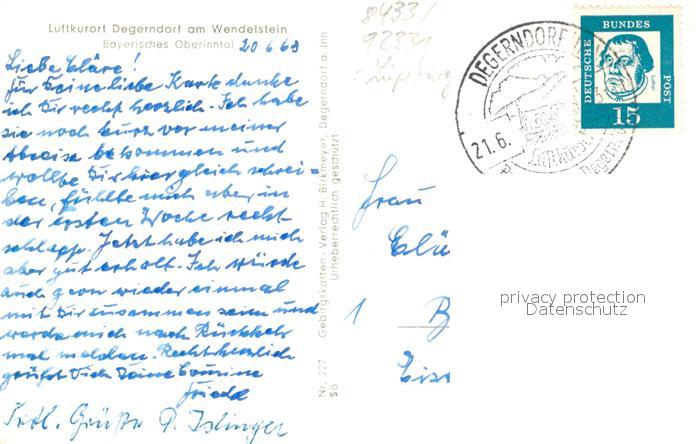 Luftkurort Degerndorf am Wendelstein
Bayerisches Oberinntal 20 6 63
Liebe Cläre!
Für Deine liebe Karte danke
ich Dir recht herzlich. Ich habe
sie noch kurz vor meiner
Abreise bekommen und
wollte Dir hier gleich schrei-
ben, fühlte mich aber in
der ersten Woche recht
schlapp. Jetzt habe ich mich
aber gut erholt. Ich würde
auch gern wieder einmal
mit Dir zusammen sein und
werde mich nach Rückkehr
mal melden. Recht herzlich
grüßt Dich Deine Cousine
Friedl
Frdl. Grüße P. Islinger
Nr. 227 Gebirgskarten-Verlag H. Birkmeyer, Degerndorf a. Inn
Sö Urheberrechtlich geschützt
8433/
92331
DEGERNDORF
21.6.
Luftkurort
DEUTSCHE
BUNDES
POST
Luther
15
Frau
Clä
1 B
privacy protection
Datenschutz